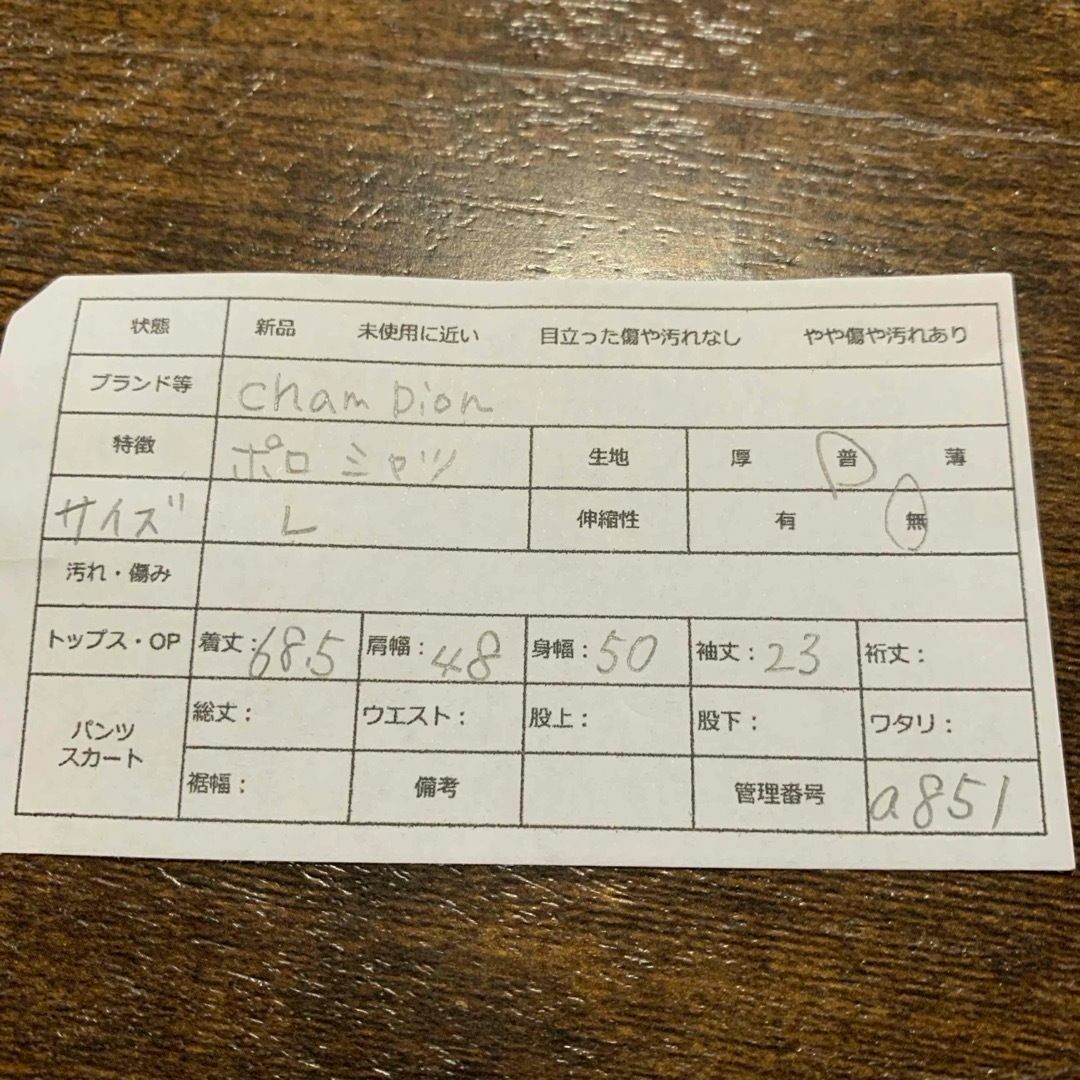 状態 新品 未使用に近い 目立った傷や汚れなし やや傷や汚れあり
ブランド等 Champion
特徴 ポロシャツ 生地 厚 普 薄
サイズ L 伸縮性 有 無
汚れ・傷み
トップス・OP 着丈:68.5 肩幅:48 身幅:50 袖丈:23 裄丈:
パンツ スカート 総丈: ウエスト: 股上: 股下: ワタリ:
裾幅: 備考 管理番号 a851